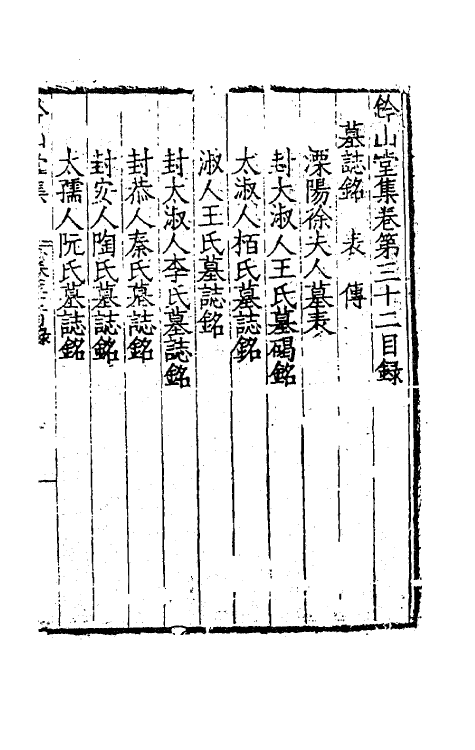 鈐山堂集卷第三十二目録
墓誌銘 表 傳
溧陽徐夫人墓表
封太淑人王氏墓碣銘
太淑人栢氏墓誌銘
淑人王氏墓誌銘
封太淑人李氏墓誌銘
封恭人秦氏墓誌銘
封安人陶氏墓誌銘
太孺人阮氏墓誌銘